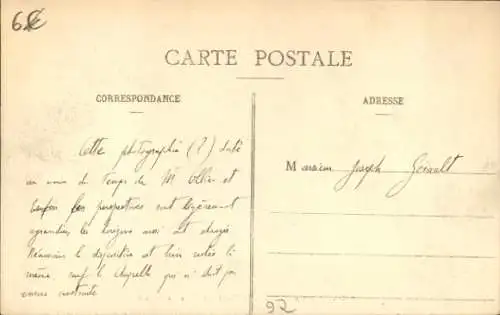 6€
CARTE POSTALE
CORRESPONDANCE
ADRESSE
Cette photographie (?) date
au mois du temps de M Ollier et
les perspectives sont légèrement
agrandies, les
Néanmoins la disposition est bien restée la
même sauf la chapelle qui n'était pas
encore construite
Monsieur Joseph Gérault
92